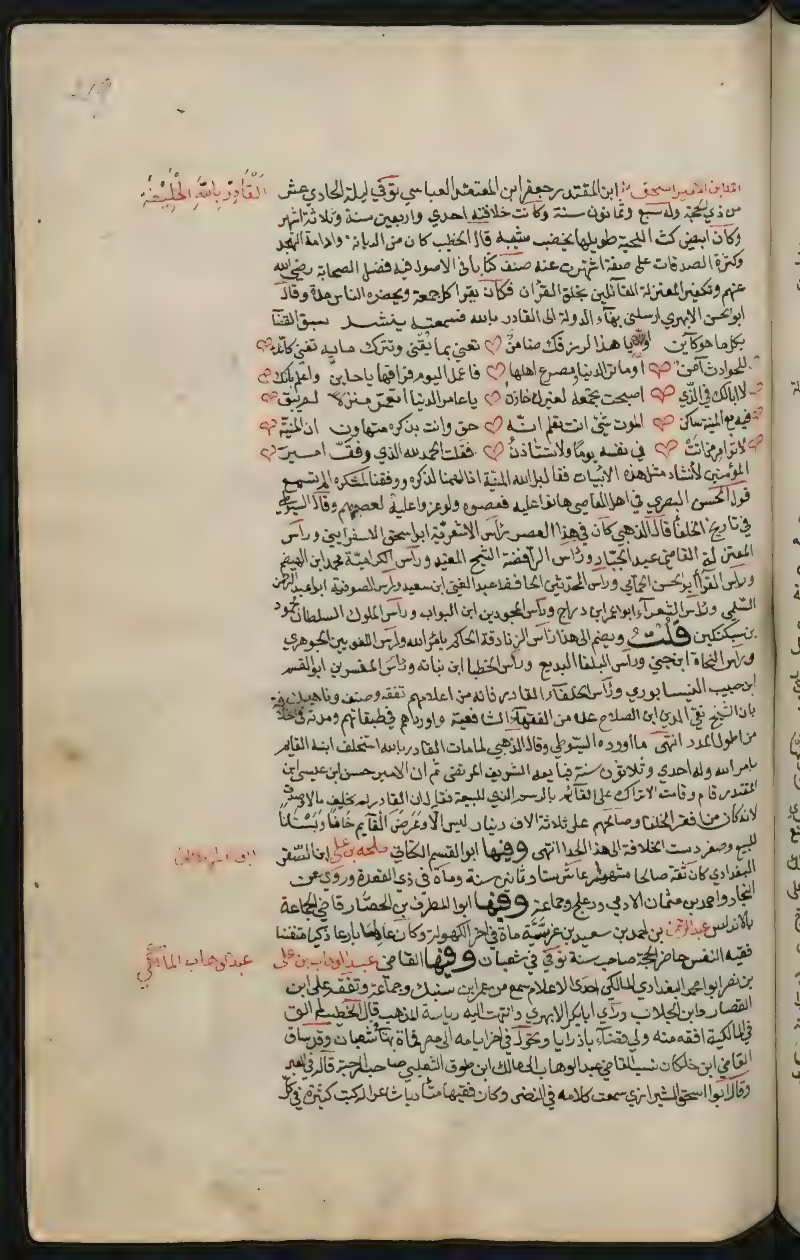 القادر بالله الخليفة
ابن الامير اسحق ابن المقتدر جعفر ابن المعتضد العباسي توفي ليلة الحادي عشر
من ذي الحجة وله سبع وثمانون سنة وكانت خلافته احدي واربعين سنة وثلاثة اشهر
وكان ابيض كث اللحية طويلها يخضب شيبه قال الخطيب كان من الديانة وادامة التهجد
وكثرة الصدقات على صفة اشتهرت عنه صنف كتابا في الاصول فيه فضل الصحابة رضي الله
عنهم وتكفير المعتزلة القائلين بخلق القران فكان يقرا كل جمعة ويحضره الناس مدة وقال
ابو الحسن الابهري ارسلني بهاء الدولة الى القادر بالله فسمعته ينشد سبق القضا
بكل ما هو كاين والله يا هذا لرزقك ضامن تعني بما يفنى وتترك ما به تغنى كانك
للحوادث آمن اوما تر الدنيا ومصرع اهلها فاعمل ليوم فراقها يا خاين واعلم بانك
لا ابالك في الذي اصبحت تجمعه لغيرك خازن يا عامر الدنيا اتعمر منزلا لم يبق
فيه مع المنية ساكن الموت شئ انت تعلم انه حق وانت بذكره متهاون ان المنية
لا توامر من اتت في نفسه يوما ولا تستاذن فقلت الحمد لله الذي وفق امير
المؤمنين لانشاد مثل هذه الابيات فقال بل لله المنة اذ الهمنا لذكره ووفقنا لشكره الم تسمع
قول الحسن البصري في اهل المعاصي هانوا عليه فعصوه ولو عزوا عليه لعصمهم وقال السيوطي
في تاريخ الخلفا قال الذهبي كان في هذا العصر راس الاشعرية ابو اسحق الاسفرايني وراس
المعتزلة القاضي عبد الجبار وراس الرافضة الشيخ المفيد وراس الكرامية محمد ابن الهيصم
وراس القرا ابو الحسن الحمامي وراس المحدثين الحافظ عبد الغني ابن سعيد وراس الصوفية ابو عبد الرحمن
السلمي وراس الشعراء ابو عمر ابن دراج وراس المجودين ابن البواب وراس الملوك السلطان محمود
بن سبكتكين قلت ويضم الى هذا راس الزنادقة الحاكم بامر الله وراس اللغويين الجوهري
وراس النحاة ابن جني وراس البلغا البديع وراس الخطبا ابن نباته وراس المفسرين ابو القسم
ابن حبيب النيسابوري وراس الخلفاء القادر فانه من اعلامهم تفقه وصنف وناهيك به
بان الشيخ تقي الدين ابن الصلاح عده من الفقهاء الشافعية واورده في طبقاتهم ومدته في الخلافة
من اطول المدد انتهى ما اورده السيوطي وقال الذهبي لما مات القادر بالله استخلف ابنه القايم
بامر الله وله احدي وثلاثون سنة فبايعه الشريف المرتضى ثم ان الامير حسن ابن عيسى ابن
المقتدر قام وقامت الاتراك على القائم بالرسم الذي للبيعة فقال ان القادر لم يخلف مالا وصدق
لانه كان من افقر الخلفا وصالحهم على ثلاثة الاف دينار ليس الا وعرض القايم خانا وبستانا
للبيع وصغر دست الخلافة الى هذا الحد انتهى وفيها ابو القسم الكتاني طلحة بن علي ابن الصقر
البغدادي كان ثقة صالحا مشهورا عاش ستا وثمانين سنة ومات في ذي القعدة وروى عن
النجاد واحمد بن عثمان الادمي ودعلج وجماعة وفيها ابو المطرف بن الحصار قاضي الجماعة
بالاندلس عبد الرحمن بن احمد بن سعيد بن غرسية مات في اخر الكهولة وكان عالما بارعا ذكيا متفننا
فقيه النفس حاضر الحجة صاحب سنة توفي في شعبان وفيها القاضي عبد الوهاب بن علي
عبد الوهاب المالكي
بن نصر ابو محمد البغدادي المالكي احد الاعلام سمع من عمر ابن سنبك وجماعة وتفقه على ابن
القصار وابن الجلاب وراي ابا بكر الابهري وانتهت اليه رياسة المذهب قال الخطيب لم الق
في المالكية افقه منه ولي قضاء باذرايا وتحول في اخر ايامه الى مصر فمات بها شعبان وقد ساق
القاضي ابن خلكان نسب القاضي عبد الوهاب الى مالك ابن طوق التغلبي صاحب الرحبة قاله في العبر
وقال ابو اسحق الشيرازي سمعت كلامه في النضر وكان فقيها متادبا شاعرا له كتب كثيرة في كل